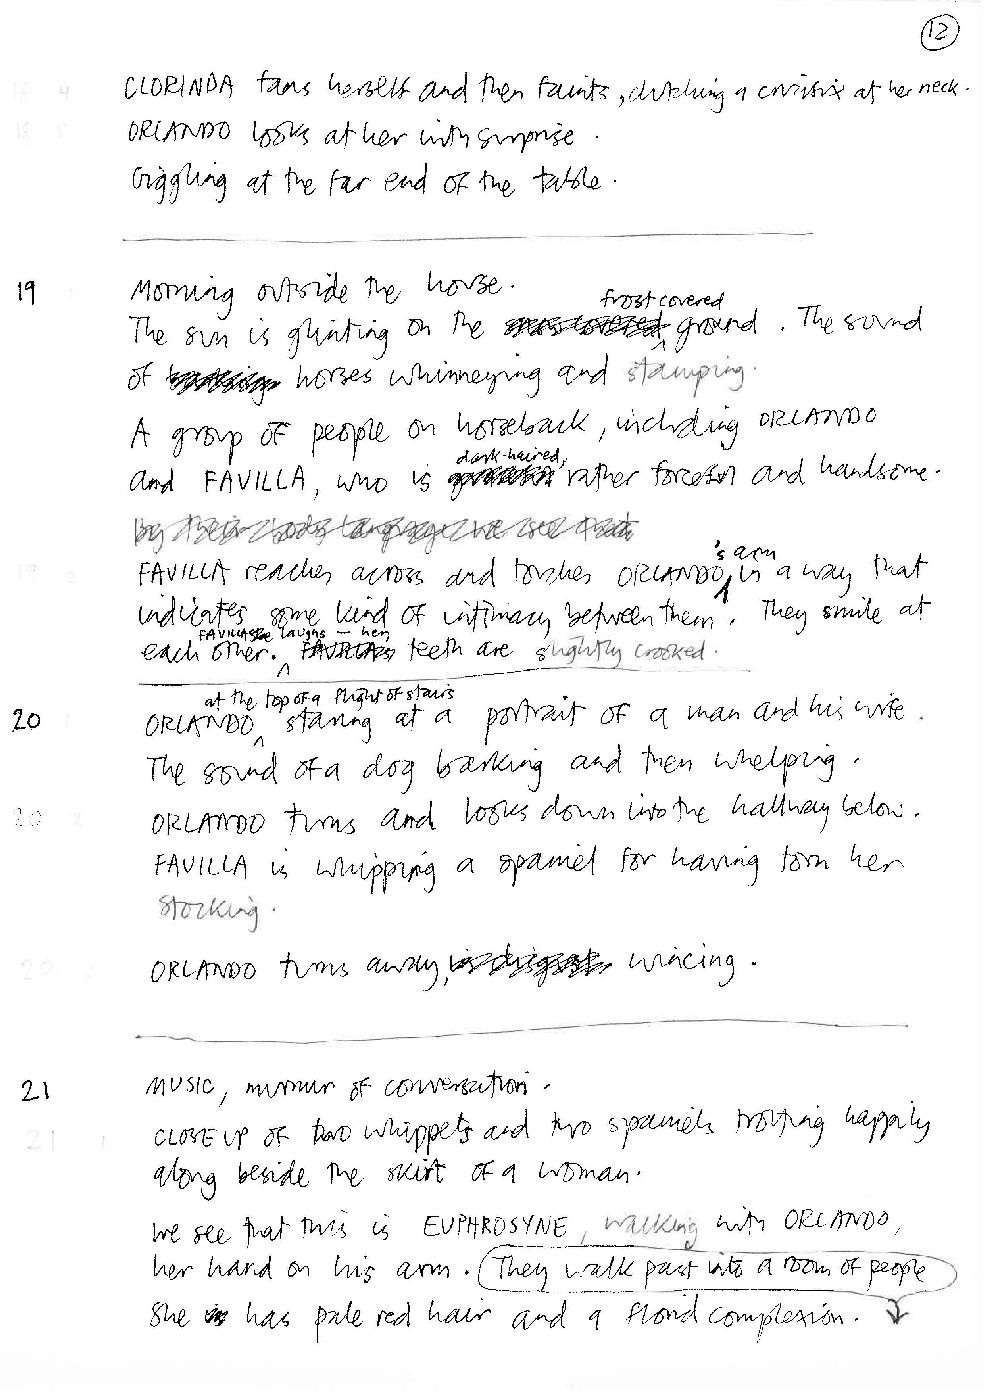 12
CLORINDA fans herself and then faints, clutching a crucifix at her neck.
ORLANDO looks at her with surprise.
Giggling at the far end of the table.
19 Morning outside the house.
frost covered
The sun is glinting on the ground. The sound
of horses whinneying and stamping.
A group of people on horseback, including ORLANDO
dark-haired,
and FAVILLA, who is rather forceful and handsome.
by their body language we see that
's arm
FAVILLA reaches across and touches ORLANDO, in a way that
indicates some kind of intimacy between them. They smile at
FAVILLA laughs — her
each other. FAVILLA's teeth are slightly crooked.
at the top of a flight of stairs
20 ORLANDO staring at a portrait of a man and his wife.
The sound of a dog barking and then whelping.
20 2 ORLANDO turns and looks down into the hallway below.
FAVILLA is whipping a spaniel for having torn her
stocking.
20 3 ORLANDO turns away, in disgust, wincing.
21 MUSIC, murmur of conversation.
21 1 CLOSE UP of two whippets and two spaniels trotting happily
along beside the skirt of a woman.
We see that this is EUPHROSYNE, walking with ORLANDO,
her hand on his arm. They walk past into a room of people
She is has pale red hair and a florid complexion.